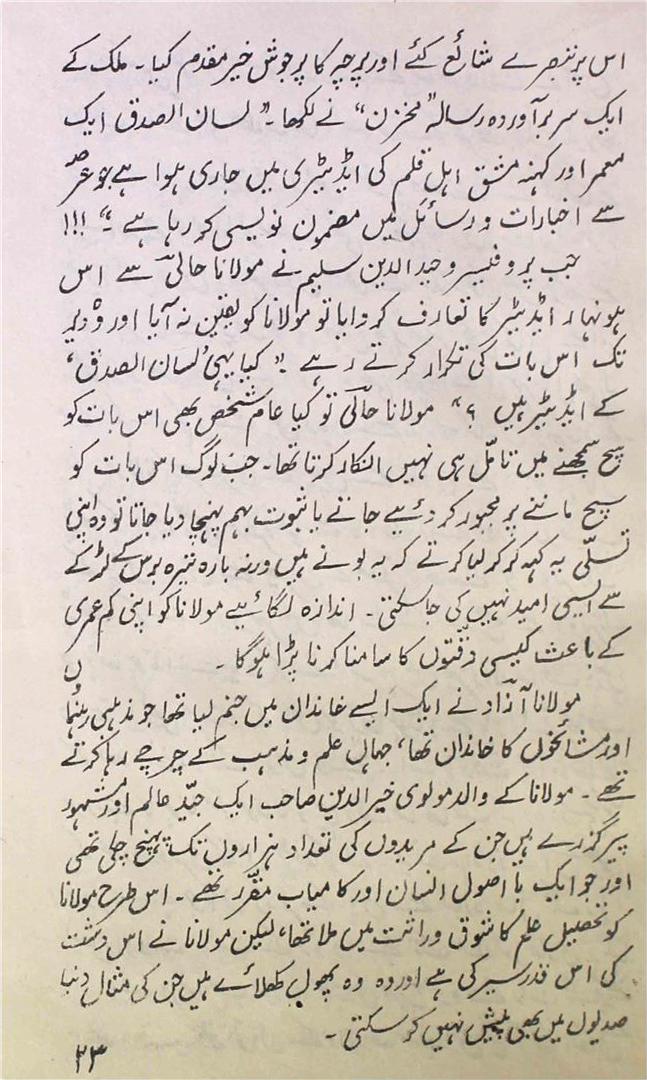 اس پر تبصرے شائع کئے اور پرچہ کا پرجوش خیر مقدم کیا۔ ملک کے
ایک سربرآوردہ رسالہ "مخزن" نے لکھا۔ "لسان الصدق ایک
معمر اور کہنہ مشق اہل قلم کی ایڈیٹیری میں جاری ہوا ہے جو عرصہ
سے اخبارات و رسائل میں مضمون نویسی کر رہا ہے۔" !!!
جب پروفیسر وحید الدین سلیم نے مولانا حالیؔ سے اس
ہونہار ایڈیٹیر کا تعارف کروایا تو مولانا کو یقین نہ آیا اور وہ دیر
تک اس بات کی تکرار کرتے رہے۔ "کیا یہی 'لسان الصدق'
کے ایڈیٹیر ہیں ؟" مولانا حالیؔ تو کیا عام شخص بھی اس بات کو
سچ سمجھنے میں تامّل ہی نہیں انکار کرتا تھا۔ جب لوگ اس بات کو
سچ ماننے پر مجبور کر دئیے جاتے یا ثبوت بہم پہنچا دیا جاتا تو وہ اپنی
تسلّی یہ کہہ کر کر لیا کرتے کہ یہ بونے ہیں ورنہ بارہ تیرہ برس کے لڑکے
سے ایسی امید نہیں کی جا سکتی۔ اندازہ لگائیے مولانا کو اپنی کم عمری
کے باعث کیسی دقّتوں کا سامنا کرنا پڑا ہوگا۔
مولانا آزاد نے ایک ایسے خاندان میں جنم لیا تھا جو مذہبی رہنماؤں
اور مشائخوں کا خاندان تھا، جہاں علم و مذہب کے چرچے رہا کرتے
تھے۔ مولانا کے والد مولوی خیر الدین صاحب ایک جیّد عالم اور مشہور
پیر گزرے ہیں جن کے مریدوں کی تعداد ہزاروں تک پہنچ چلی تھی
اور جو ایک با اصول انسان اور کامیاب مقرّر تھے۔ اس طرح مولانا
کو تحصیل علم کا شوق وراثت میں ملا تھا، لیکن مولانا نے اس دشت
کی اس قدر سیر کی ہے اور وہ وہ پھول کھلائے ہیں جن کی مثال دنیا
صدیوں میں بھی پیش نہیں کر سکتی۔
۲۳